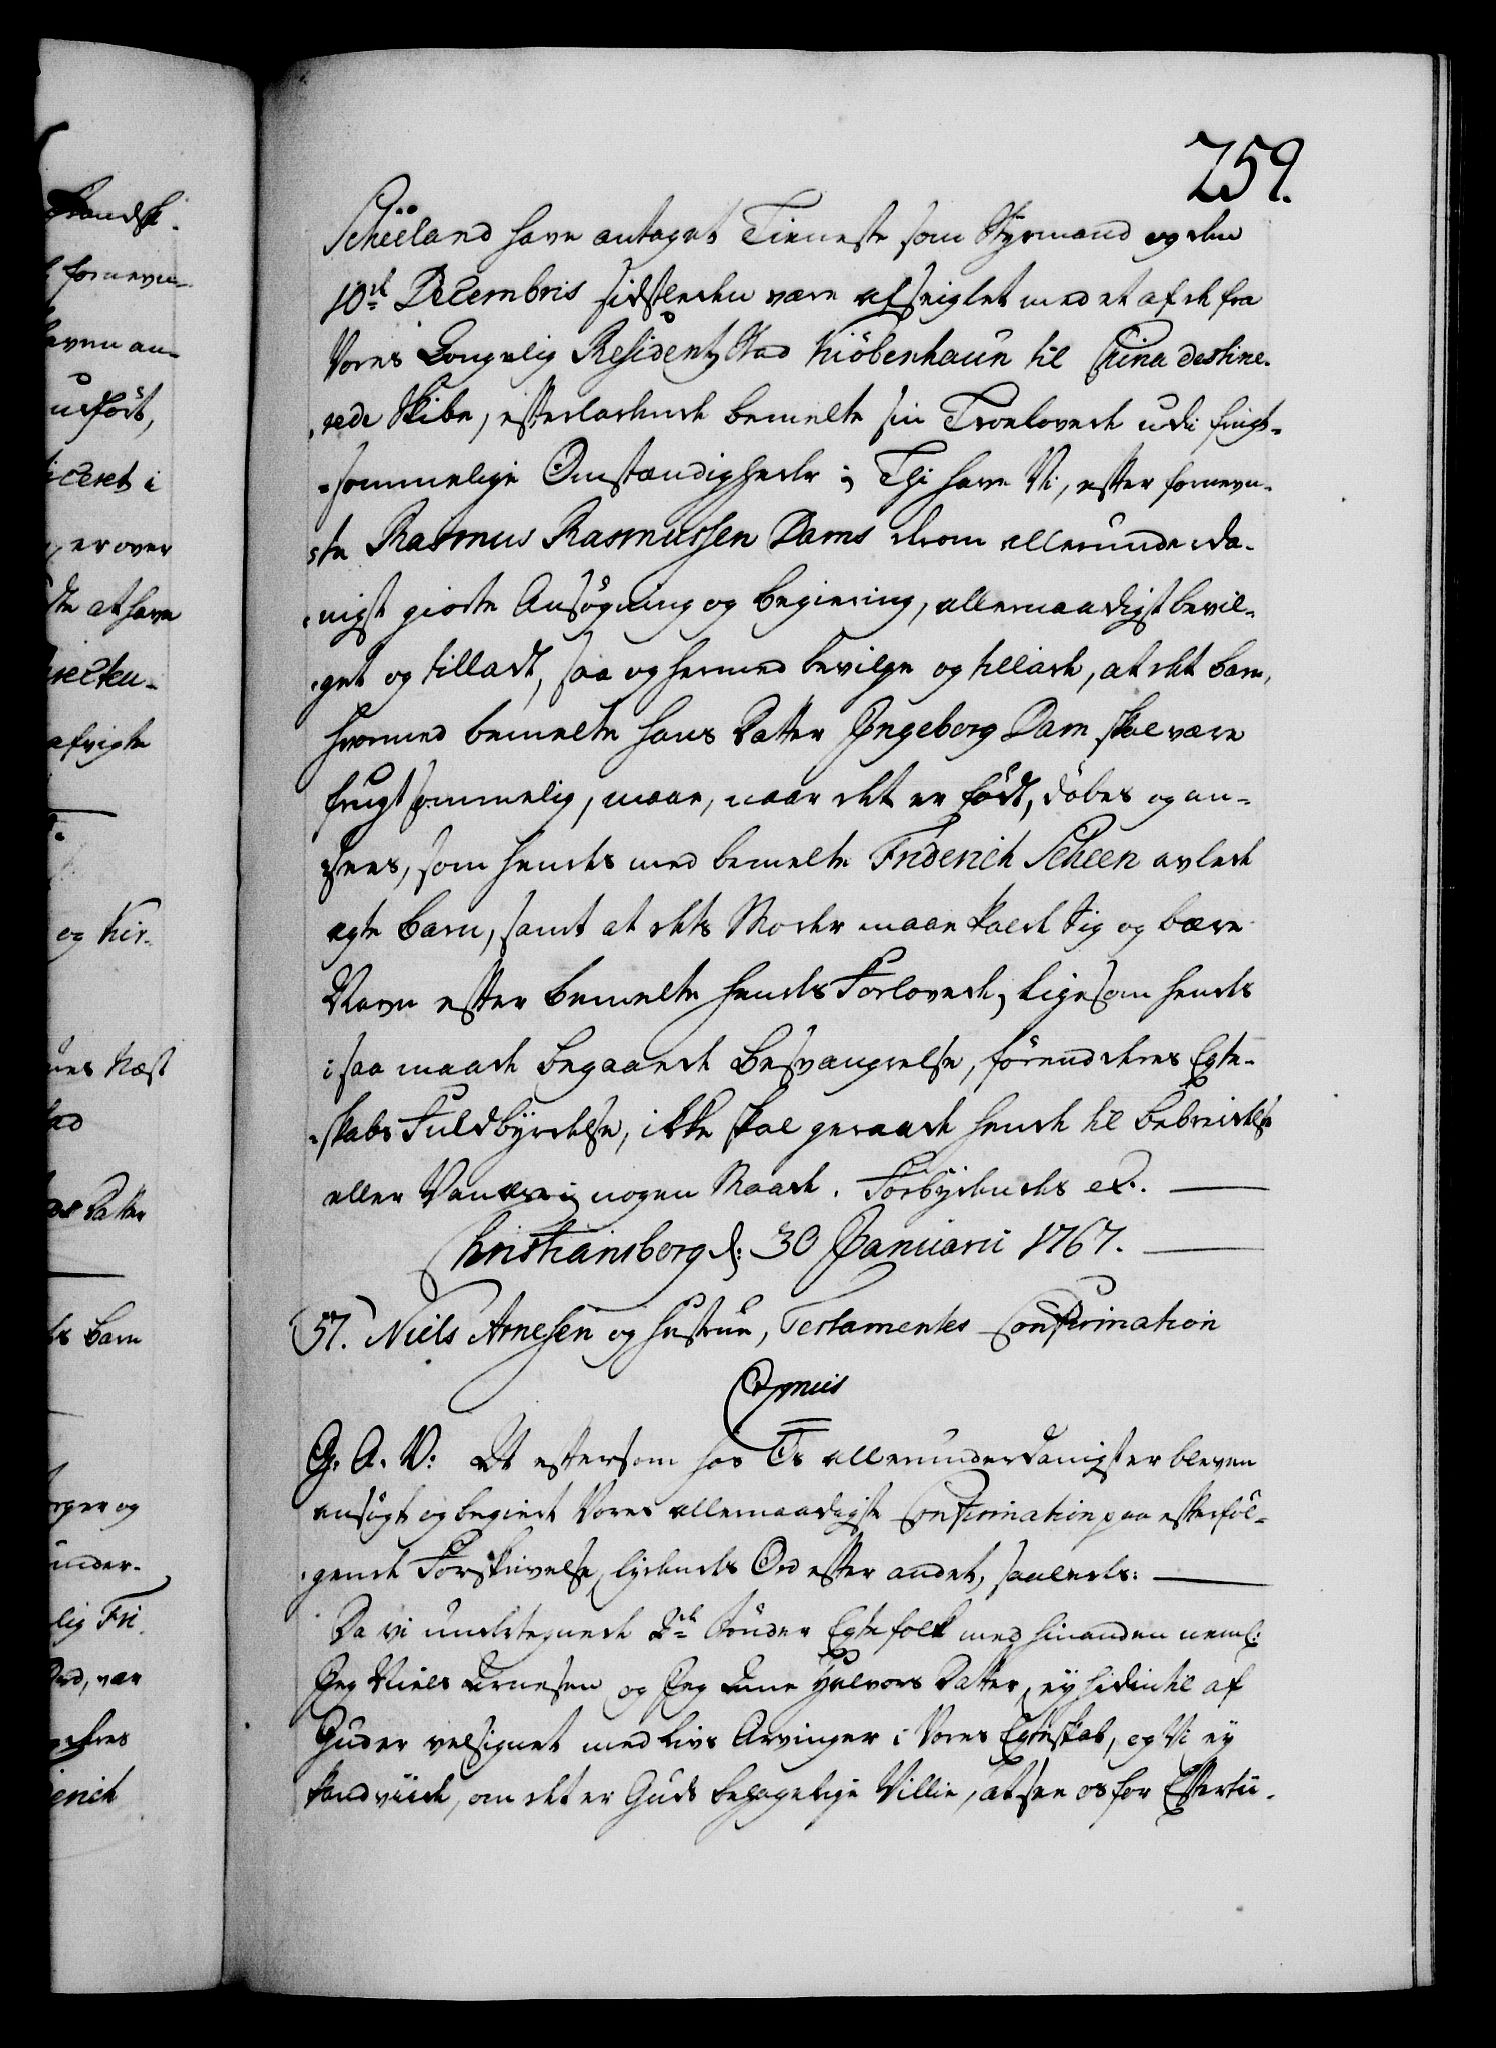 259.
Scheeland have antaget Tieneste som Styrmand og den
10de Decembris sidstleden være afseiglet med et af de fra
Vores Kongelig Residentz Stad Kiöbenhaun til China destine-
rede Skibe, efterladende bemelte sin Troelovede udi frugt-
sommelige Omstændigheder; Thi have Vi, efter fornevn-
te Rasmus Rasmussen Dams derom allerunderda-
nigst giorte Ansögning og Begiering, allernaadigst bevil-
get og tilladt, saa og hermed bevilge og tillade, at det Barn,
hvormed bemelte hans Datter Ingeborg Dam skal være
frugtsommelig, maae, naar det er födt, döbes og an-
sees, som hendes med bemelte Friderich Scheen avlede
ægte Barn, samt at dets Moder maae kalde sig og bære
Navn efter bemelte hendes Forlovede, ligesom hendes
i saa maade begaaede Besvangrelse, förend deres Egte-
skabs Fuldbyrdelse, ikke skal geraade hende til Bebreidelse
eller Vanære i nogen Maade. Forbydendes etc.
Christiansborg d: 30 Januarii 1767.
57. Niels Arnesen og Hustrue, Testamentes Confirmation
Gratis
G. A. V: At eftersom hos Os allerunderdanigst er bleven
ansögt og begiert Vores allernaadigste Confirmation paa efterföl-
gende Forskrivelse, lydendes Ord efter andet, saaledes:
Da vi undertegnede 2de Sönder Egtefolk med hinanden neml:
Jeg Niels Arnesen og Jeg Anne Halvors Datter, ey hidintil af
Gud er velsignet med Livs Arvinger i Vores Egteskab, og Vi ey
kand viide, om det er Guds behagelige Villie, at see os for Eftertii-
fornevn-
udfört,
og Kir-
Datter
Barn
under-